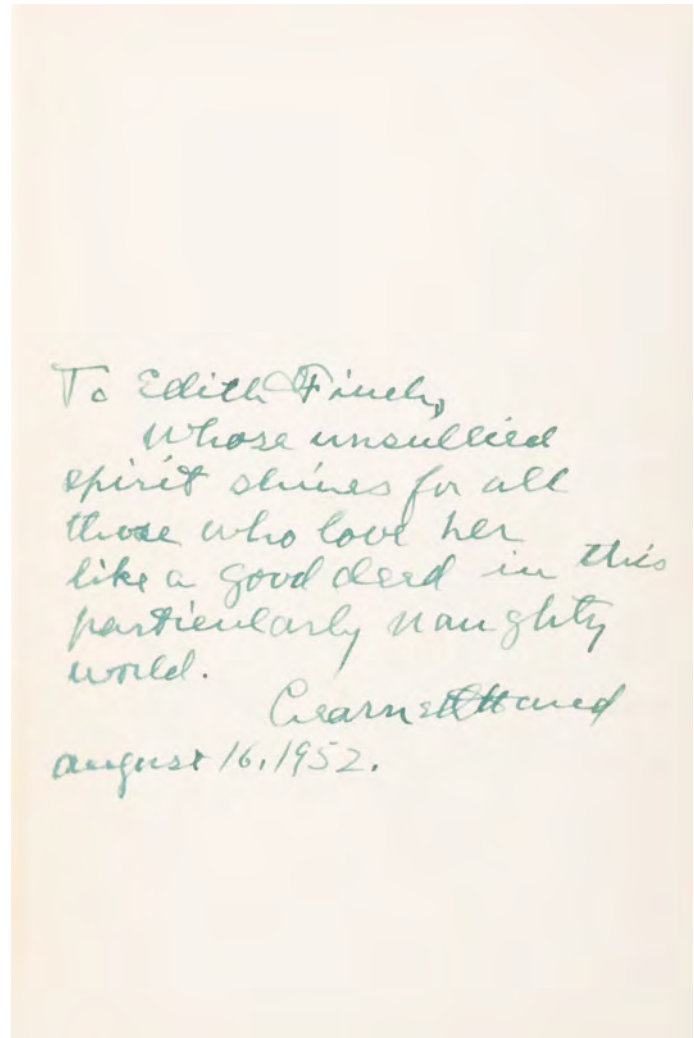 To Edith Finch,
Whose unsullied
spirit shines for all
those who love her
like a good deed in this
particularly naughty
world.
Learned Hand
august 16, 1952.